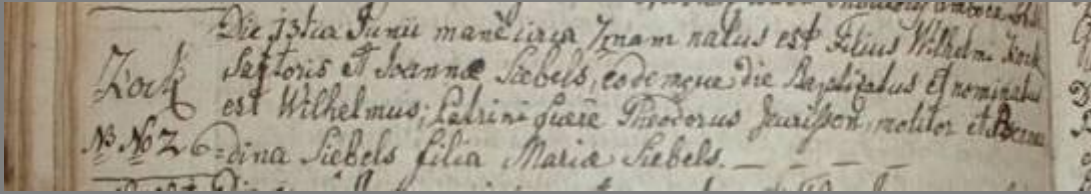 Die 13tia Junii manè circa 7mam natus est Filius Wilhelm. Kock
Kock
Sartoris et Joannæ Siebels, eodemque die Baptizatus et nominatus
est Wilhelmus; Patrini fuêre Theodorus Jeurissen, molitor et Bernar
NB No 26 =dina Siebels filia Mariæ Siebels. — — — —